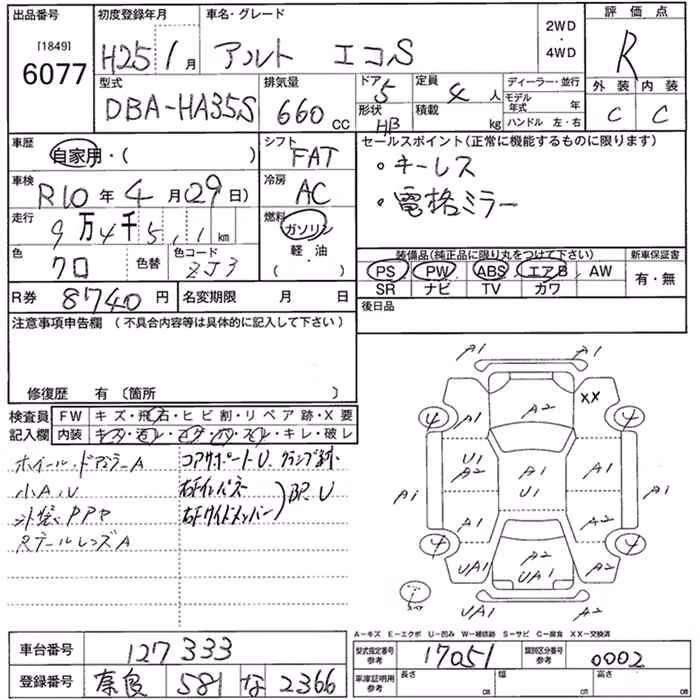 出品番号 初度登録年月 車名・グレード 2WD・4WD 評価点
[1849] 6077 H25 1月 アルト エコS R
型式 排気量 ドア 定員 ディーラー・並行 外装 内装
DBA-HA35S 660 CC 5 4 人 モデル年式 年 C C
形状 HB 積載 kg ハンドル 左・右
車歴 自家用・( ) シフト FAT セールスポイント(正常に機能するものに限ります)
車検 R10年4月(29日) 冷房 AC ・キーレス
・電格ミラー
走行 9万4千5,1 km 燃料 ガソリン
軽・油
( )
色 クロ 色替 色コード ZJ3
装備品(純正品に限り丸をつけて下さい) 新車保証書
PS PW ABS エアB AW 有・無
SR ナビ TV カワ
R券 8740円 名変期限 月 日 後日品
注意事項申告欄 (不具合内容等は具体的に記入して下さい)
修復歴 有 〔箇所 〕
検査員 FW キズ・飛石・ヒビ割・リペア跡・X要
記入欄 内装 キズ・汚レ・コゲ・穴・スレ・キレ・破レ
ホイール・ドアミラーA コアサポートU、クランプ跡
小A、U 右Fインパネ
右Fサイドメンバー )BP、U
RテールレンズA
A1 A1
A2 XX
4 A1 4
U1 A2 A1 A1
A1 U1 A1
A2 A2
4 4
UA1 A2 UA1 A2
UA1 UA1
A−キズ E−エクボ U−凹み W−補修跡 S−サビ C−腐食 XX−交換済
車台番号 127333 型式指定番号 参考 17051 類別区分番号 参考 0002
登録番号 奈良 581 な 2366 車庫証明用 参考 長さ cm 幅 cm 高さ cm